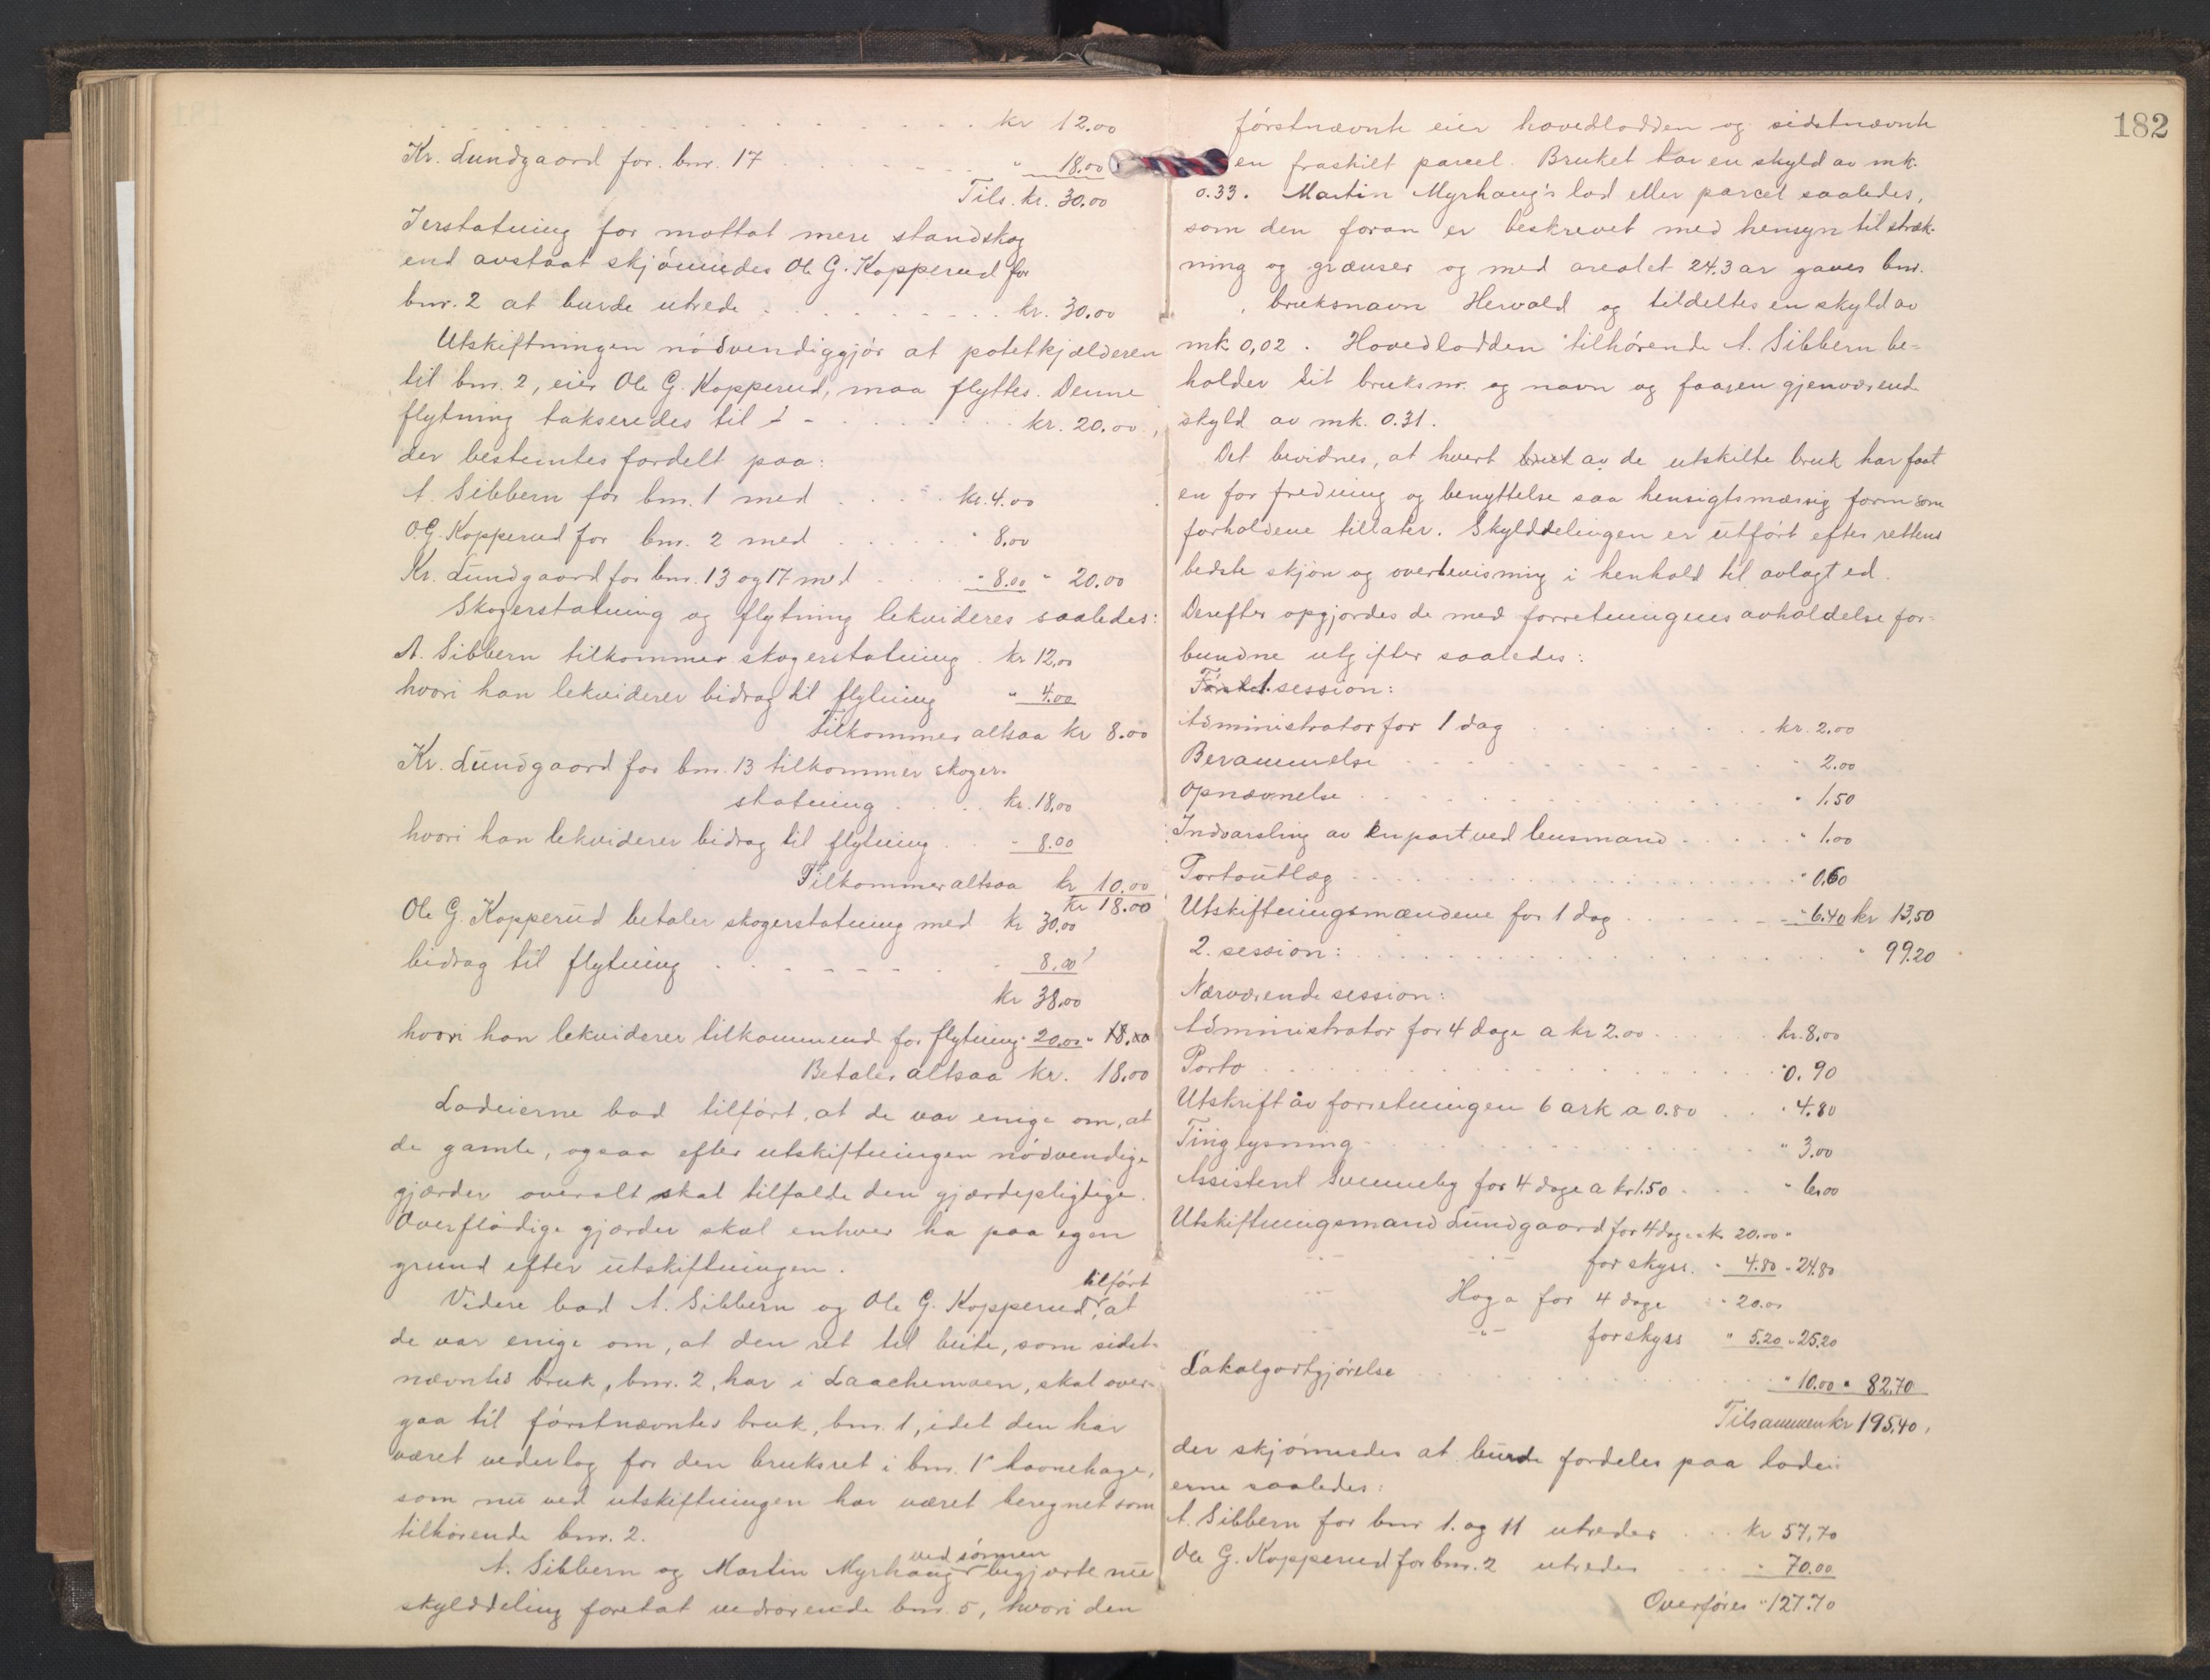 . . . . . . . . . . . . . . . . kr 12.00
Kr. Lundgaard for bnr. 17 . . . . . . " 18.00
Tils. kr. 30.00
I erstatning for mottat mere standskog
end avstaat skjønnedes Ole G. Kopperud for
bnr. 2 at burde utrede . . . . . . . . . . kr. 30.00
Utskiftningen nödvendiggjör at potetkjælderen
til bnr. 2, eier Ole G. Kopperud, maa flyttes. Denne
flytning takseredes til - - . . . . . . . kr. 20.00,
der bestemtes fordelt paa:
A. Sibbern for bnr. 1 med . . . . kr. 4.00
O.G. Kopperud for bnr. 2 med . . . . . . " 8.00
Kr. Lundgaard for bnr. 13 og 17 med . . . " 8.00 " 20.00
Skogerstatning og flytning lekvideres saaledes:
A. Sibbern tilkommer skogerstatning . kr 12,00
hvori han lekviderer bidrag til flytning " 4.00
Tilkommer altsaa kr 8.00
Kr. Lundgaard for bnr. 13 tilkommer skoger-
statning . . . . kr. 18,00
hvori han lekviderer bidrag til flytning . . - 8.00
Tilkommer altsaa kr 10.00
kr 18.00
Ole G. Kopperud betaler skogerstatning med kr 30,00
bidrag til flytning . . . . . . . . 8.00
kr 38,00
hvori han lekviderer tilkommend for flytning " 20.00 " 18.00
Betaler altsaa kr. 18.00
Lodeierne bad tilført, at de var enige om, at
de gamle, ogsaa efter utskiftningen nödvendige
gjærder overalt skal tilfalde den gjærdepligtige.
Overflödige gjærder skal enhver ha paa egen
grund efter utskiftningen.
tilført
Videre bad A. Sibbern og Ole G. Kopperud, at
de var enige om, at den ret til beite, som sidst-
nævntes bruk, bnr. 2, har i Laachemoen, skal over-
gaa til förstnævntes bruk, bnr. 1, idet den har
været vederlag for den bruksret i bnr. 1s havnehage,
som nu ved utskiftningen har været beregnet som
tilhörende bnr. 2.
ved sönnen
A. Sibbern og Martin Myrhaug begjærte nu
skylddeling foretat vedrørende bnr. 5, hvori den
182
förstnævnte eier hovedlodden og sidstnævnte
en fraskilt parcel. Bruket har en skyld av mk.
0.33. Martin Myrhaug's lod eller parcel saaledes,
som den foran er beskrevet med hensyn til stræk-
ning og grænser og med arealet 24.3 ar gaves bnr.
, bruksnavn Hervald og tildeltes en skyld av
mk 0,02. Hovedlodden tilhörende A. Sibbern be-
holder sit bruksnr. og navn og faar en gjenværend
skyld av mk. 0.31.
Det bevidnes, at hvert bruk av de utskilte bruk har faat
en for fredning og benyttelse saa hensigtsmæssig form som
forholdene tillater. Skylddelingen er utfört efter rettens
bedste skjön og overbevisning i henhold til avlagt ed.
Derefter opgjordes de med forretningens avholdelse for-
bundne utgifter saaledes:
1. session:
Administrator for 1 dag . . . . . . . . kr. 2.00
Berammelse . . . . . . . . . . . . . " 2.00
Opnævnelse . . . . . . . . . . . . . " 1.50
Indvarsling av en part ved lensmand . . . . . " 1.00
Portoutlæg . . . . . . . . . . . . . . " 0.60
Utskiftningsmændene for 1 dag . . . . . . " 6.40 kr 13,50
2. session: . . . . . . . . . . . . . . . . . . " 99.20
Nærværende session:
Administrator for 4 dage a kr 2.00 . . . . . kr. 8,00
Porto . . . . . . . . . . . . . . . . . " 0.90
Utskrift av forretningen 6 ark a 0.80 . . . " 4.80
Tinglysning . . . . . . . . . . . . . . " 3.00
Assistent Svenneby for 4 dage a kr 1.50 . . . . " 6.00
Utskiftningsmand Lundgaard for 4 dage a kr 20.00
-"- -"- for skyss. " 4.80 " 24.80
-"- Haga for 4 dage " 20.00
-"- -"- for skyss " 5.20 " 25,20
Lokalgodtgjörelse . . . . . . . . . . . . " 10.00 " 82,70
Tilsammen kr 195,40,
der skjönnedes at burde fordeles paa lodei-
erne saaledes:
A. Sibbern for bnr 1. og 11 utreder . . . kr 57,70
Ole G. Kopperud for bnr. 2 utreder . . . " 70.00
Overföres " 127.70